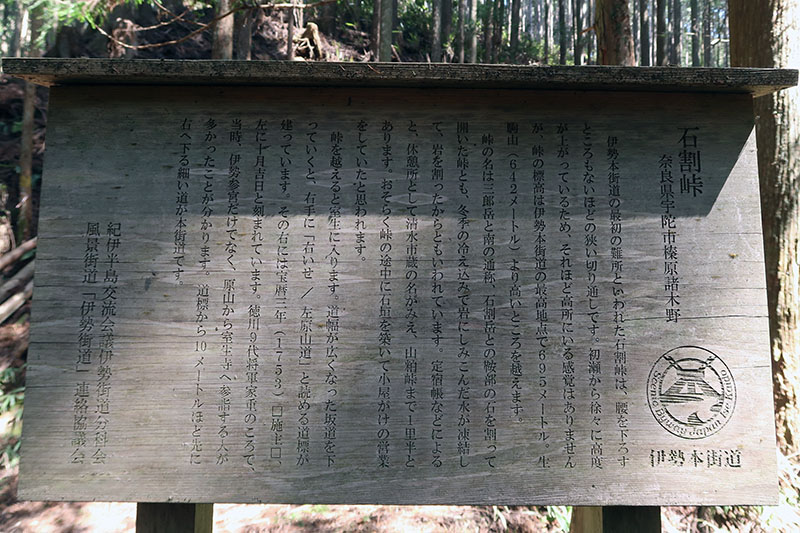 石割峠
奈良県宇陀市榛原諸木野
伊勢本街道の最初の難所といわれた石割峠は、腰を下ろす
ところもないほどの狭い切り通しです。初瀬から徐々に高度
が上がっているため、それほど高所にいる感覚はありません
が、峠の標高は伊勢本街道の最高地点で695メートル。生
駒山(642メートル)より高いところを越えます。
峠の名は三郎岳と南の通称、石割岳との鞍部の石を割って
開いた峠とも、冬季の冷え込みで岩にしみこんだ水が凍結し
て、岩を割ったからともいわれています。定宿帳などによる
と、休憩所として清水市蔵の名がみえ、山粕峠まで1里半と
あります。おそらく峠の途中に石垣を築いて小屋がけの営業
をしていたと思われます。
峠を越えると室生に入ります。道幅が広くなった坂道を下
っていくと、右手に「右いせ / 左原山道」と読める道標が
建っています。その右には宝暦三年(1753)□施主□、
左に十月吉日と刻まれています。徳川9代将軍家重のころで、
当時、伊勢参宮だけでなく、原山から室生寺へ参詣する人が
多かったことが分かります。道標から10メートルほど先に
右へ下る細い道が本街道です。
紀伊半島交流会議伊勢街道分科会
風景街道「伊勢街道」連絡協議会
Scenic Byway Japan be Kinki
伊勢本街道